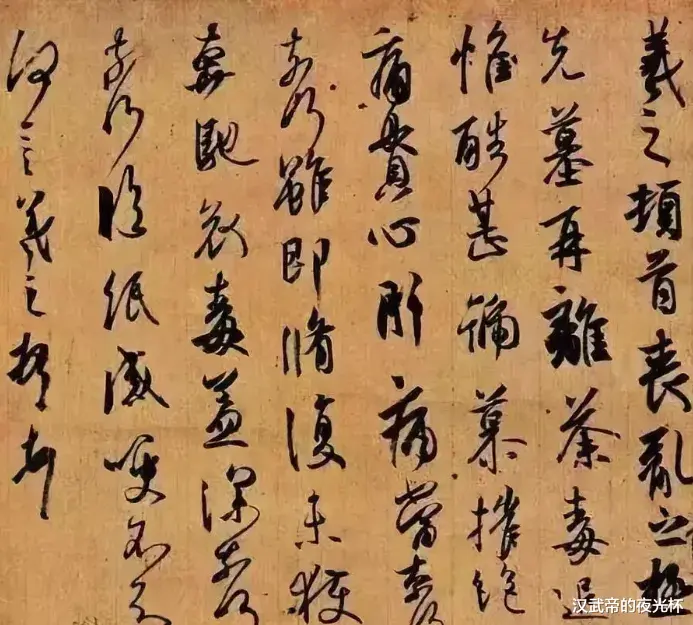 羲之頓首喪亂之極
先墓再離荼毒追
惟酷甚號慕摧絕
痛貫心肝痛當奈何
奈何雖即脩復未獲
奔馳哀毒益深奈何
奈何臨紙感哽不知
何言羲之頓首頓首
汉武帝的夜光杯